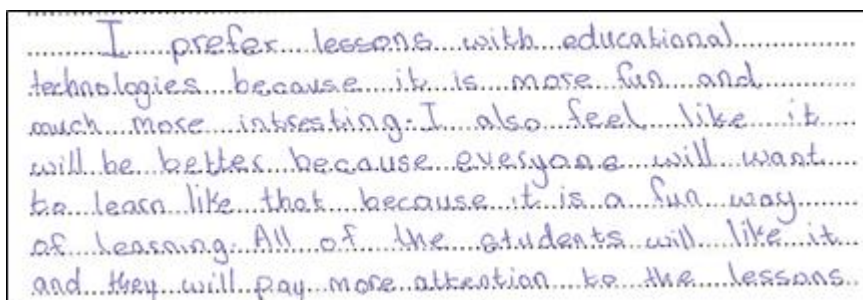 I prefer lessons with educational
technologies because it is more fun and
much more intresting. I also feel like it
will be better because everyone will want
to learn like that because it is a fun way
of learning. All of the students will like it
and they will pay more attention to the lessons